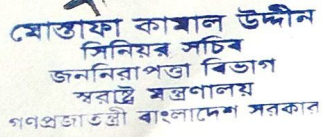 মোস্তাফা কামাল উদ্দীন
সিনিয়র সচিব
জননিরাপত্তা বিভাগ
স্বরাষ্ট্র মন্ত্রণালয়
গণপ্রজাতন্ত্রী বাংলাদেশ সরকার